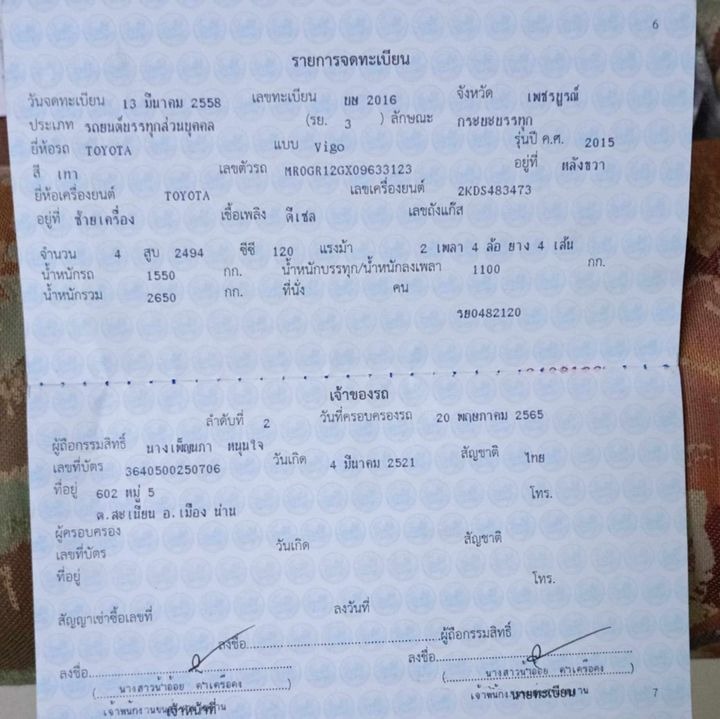 6
รายการจดทะเบียน
วันจดทะเบียน 13 มีนาคม 2558 เลขทะเบียน บษ 2016 จังหวัด เพชรบูรณ์
ประเภท รถยนต์บรรทุกส่วนบุคคล (รย. 3 ) ลักษณะ กระบะบรรทุก
ยี่ห้อรถ TOYOTA แบบ Vigo รุ่นปี ค.ศ. 2015
สี เทา เลขตัวรถ MR0GR12GX09633123 อยู่ที่ หลังขวา
ยี่ห้อเครื่องยนต์ TOYOTA เลขเครื่องยนต์ 2KDS483473
อยู่ที่ ซ้ายเครื่อง เชื้อเพลิง ดีเซล เลขถังแก๊ส
จำนวน 4 สูบ 2494 ซีซี 120 แรงม้า 2 เพลา 4 ล้อ ยาง 4 เส้น
น้ำหนักรถ 1550 กก. น้ำหนักบรรทุก/น้ำหนักลงเพลา 1100 กก.
น้ำหนักรวม 2650 กก. ที่นั่ง คน
รย0482120
เจ้าของรถ
ลำดับที่ 2 วันที่ครอบครองรถ 20 พฤษภาคม 2565
ผู้ถือกรรมสิทธิ์ นางเพ็ญนภา หนุนใจ
เลขที่บัตร 3640500250706 วันเกิด 4 มีนาคม 2521 สัญชาติ ไทย
ที่อยู่ 602 หมู่ 5 โทร.
ต.สะเนียน อ.เมือง น่าน
ผู้ครอบครอง
เลขที่บัตร วันเกิด สัญชาติ
ที่อยู่ โทร.
สัญญาเช่าซื้อเลขที่ ลงวันที่
ลงชื่อ ผู้ถือกรรมสิทธิ์
ลงชื่อ ลงชื่อ
( นางสาวน้ำอ้อย คำเครือคง ) ( นางสาวน้ำอ้อย คำเครือคง )
เจ้าหน้าที่ นายทะเบียน 7